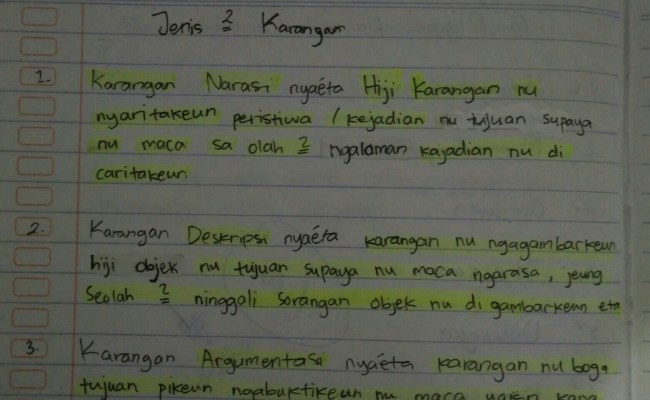 Jenis 2 Karangan
1. Karangan Narasi nyaéta Hiji Karangan nu
nyaritakeun peristiwa / kejadian nu tujuan supaya
nu maca sa olah 2 ngalaman kajadian nu di
caritakeun
2. Karangan Deskripsi nyaéta karangan nu ngagambarkeun
hiji objek nu tujuan supaya nu maca ngarasa, jeung
Seolah 2 ninggali sorangan objek nu di gambarkeun eta
3. Karangan Argumentasa nyaéta karangan nu boga
tujuan pikeun ngabuktikeun nu maca yakin kana